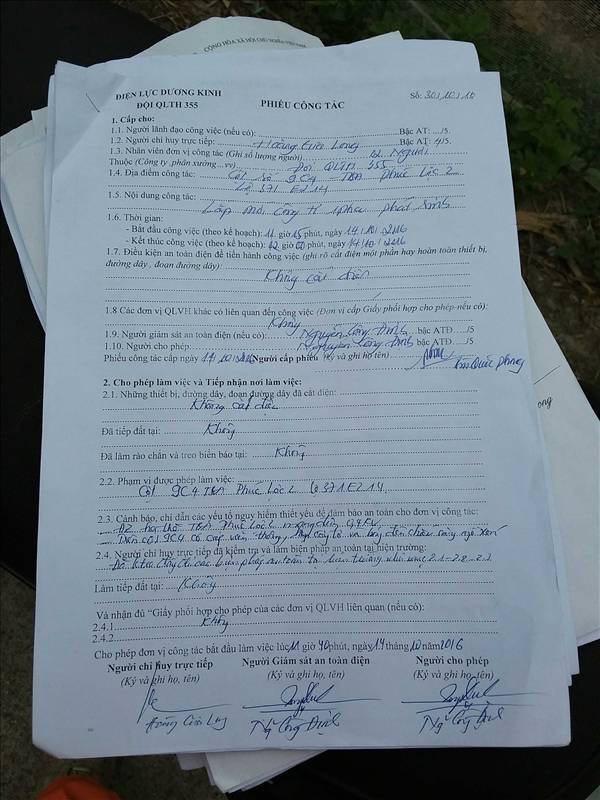 CỘNG HÒA XÃ HỘI CHỦ NGHĨA
ĐIỆN LỰC DƯƠNG KINH
ĐỘI QLTH 355
PHIẾU CÔNG TÁC
Số: 30/10/16
1. Cấp cho:
1.1. Người lãnh đạo công việc (nếu có): Bậc AT: /5.
1.2. Người chỉ huy trực tiếp: Hoàng Cửu Long Bậc AT: 4/5.
1.3. Nhân viên đơn vị công tác (Ghi số lượng người) 12 người
Thuộc (Công ty, phân xưởng...vv) Đội QLTH 355
1.4. Địa điểm công tác: Cột số 9C4 TBA Phúc Lộc 2
Lộ 371 E2.14
1.5. Nội dung công tác:
Lắp mới công tơ 1 pha phát sinh
1.6. Thời gian:
- Bắt đầu công việc (theo kế hoạch): 11 giờ 15 phút, ngày 14/10/2016
- Kết thúc công việc (theo kế hoạch): 12 giờ 00 phút, ngày 14/10/2016
1.7. Điều kiện an toàn điện để tiến hành công việc (ghi rõ cắt điện một phần hay hoàn toàn thiết bị,
đường dây, đoạn đường dây):
Không cắt điện
1.8 Các đơn vị QLVH khác có liên quan đến công việc (Đơn vị cấp Giấy phối hợp cho phép-nếu có):
Không
1.9. Người giám sát an toàn điện (nếu có): Nguyễn Công Định bậc ATĐ /5
1.10. Người cho phép: Nguyễn Công Định bậc ATĐ /5
Phiếu công tác cấp ngày 14/10/2016 Người cấp phiếu (Ký và ghi họ tên)
Quốc Phong
2. Cho phép làm việc và Tiếp nhận nơi làm việc:
2.1. Những thiết bị, đường dây, đoạn đường dây đã cắt điện:
Không cắt điện
Đã tiếp đất tại: Không
Đã làm rào chắn và treo biển báo tại: Không
2.2. Phạm vi được phép làm việc:
Cột 9C4 TBA Phúc Lộc 2 Lộ 371 E2.14
2.3. Cảnh báo, chỉ dẫn các yếu tố nguy hiểm thiết yếu để đảm bảo an toàn cho đơn vị công tác:
TBA Phúc Lộc 2 mang điện 0,4 KV
9C4 có cáp viễn thông,
2.4. Người chỉ huy trực tiếp đã kiểm tra và làm biện pháp an toàn tại hiện trường:
Đã kiểm tra đầy đủ các biện pháp an toàn tại hiện trường như mục 2.1 - 2.2 - 2.3
Làm tiếp đất tại: Không
Và nhận đủ "Giấy phối hợp cho phép của các đơn vị QLVH liên quan (nếu có):
2.4.1. Không
2.4.2.
Cho phép đơn vị công tác bắt đầu làm việc lúc 11 giờ 40 phút, ngày 14 tháng 10 năm 2016
Người chỉ huy trực tiếp Người Giám sát an toàn điện Người cho phép
(Ký và ghi họ, tên) (Ký và ghi họ, tên) (Ký và ghi họ, tên)
Hoàng Cửu Long Ng Công Định Ng Công Định